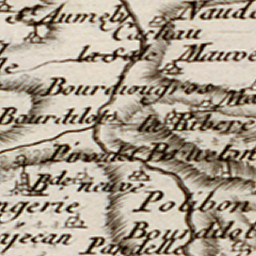 St. Aumely
Naude
Cachau
la Sale
Mauve
Bourdiougros
Ma
Bourdilot
la Ribere
Piroulet
Bruelon
Bde. neuve
ngerie
Polibon
yecan
Bourdilot
Pandelle